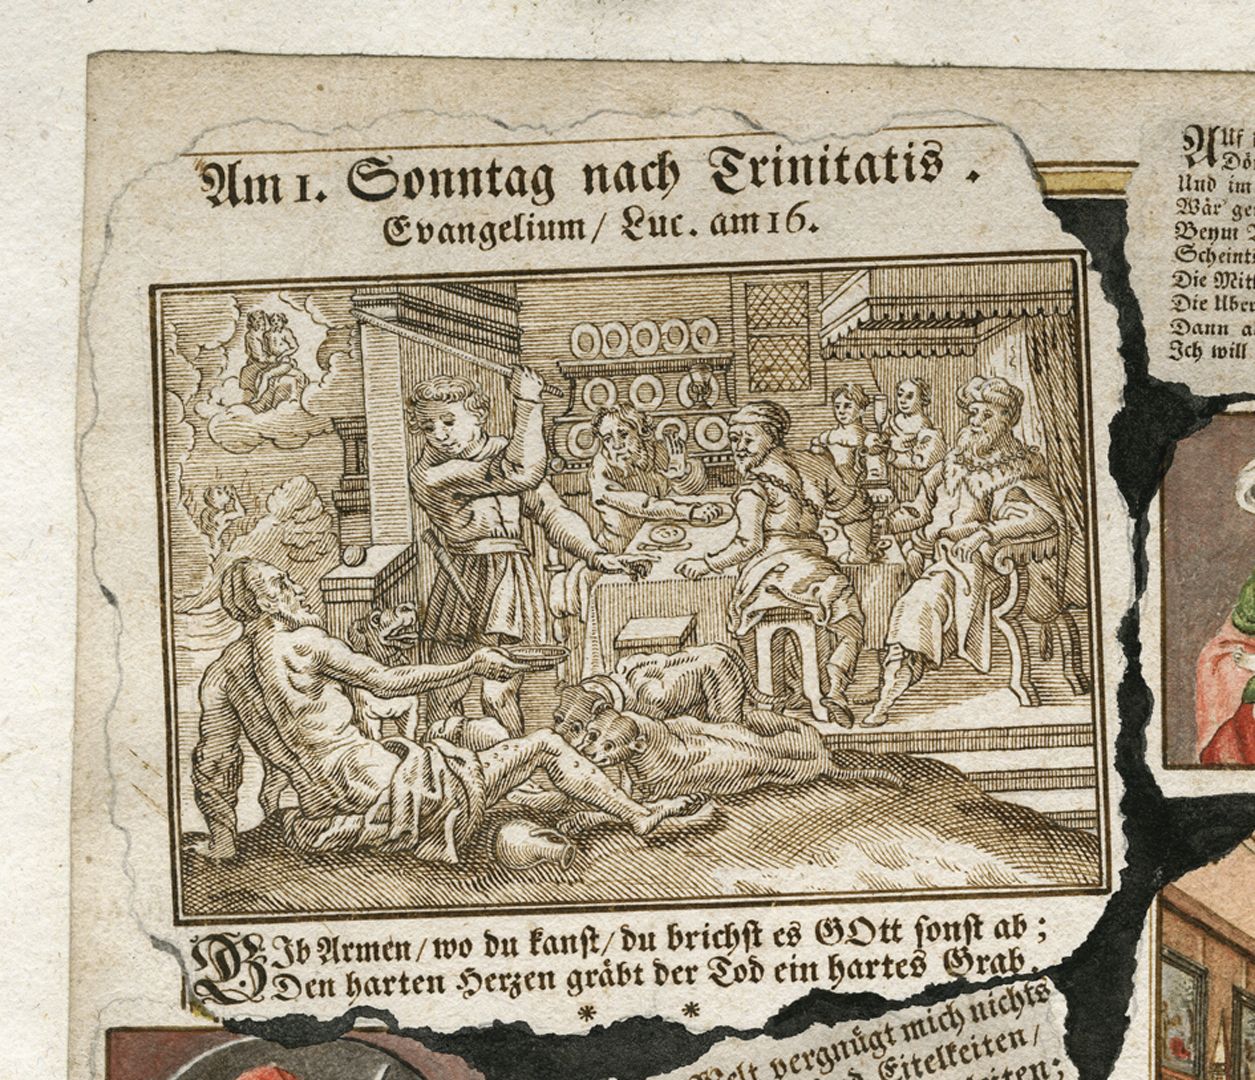 Am 1. Sonntag nach Trinitatis.
Evangelium/ Luc. am 16.
GIb Armen/ wo du kanst/ du brichst es GOtt sonst ab;
Den harten Herzen gräbt der Tod ein hartes Grab.
* *
AUf
Und im
Wär' ge
Beym
Scheint
Die Mit
Die Uber
Dann a
Ich will
Welt vergnügt mich nichts
Eitelkeiten/